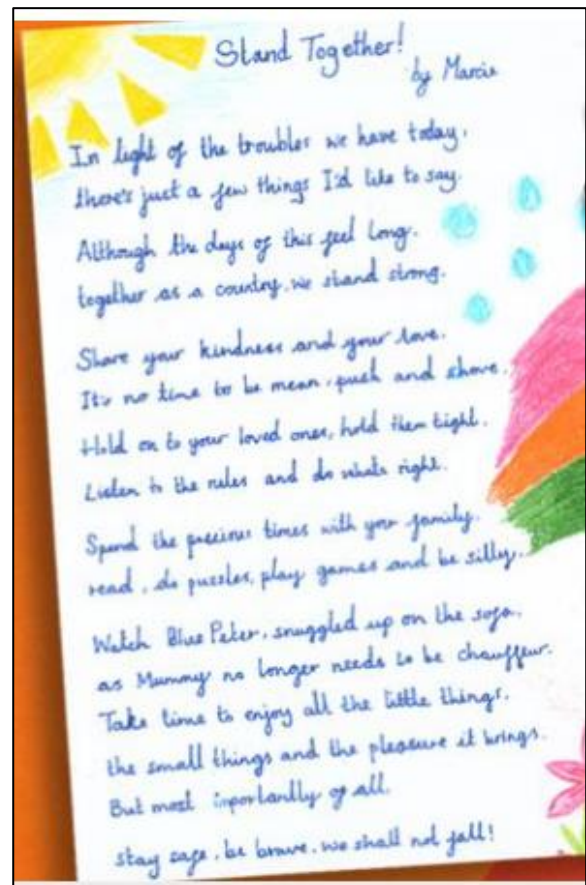 Stand Together!
by Marcie
In light of the troubles we have today,
there's just a few things I'd like to say.
Although the days of this feel long.
together as a country, we stand strong.
Share your kindness and your love.
It's no time to be mean, push and shove.
Hold on to your loved ones, hold them tight.
Listen to the rules and do whats right.
Spend the precious times with your family.
read, do puzzles, play games and be silly.
Watch Blue Peter, snuggled up on the sofa.
as Mummy no longer needs to be chauffeur.
Take time to enjoy all the little things.
the small things and the pleasure it brings.
But most importantly of all.
stay safe, be brave, we shall not fall!